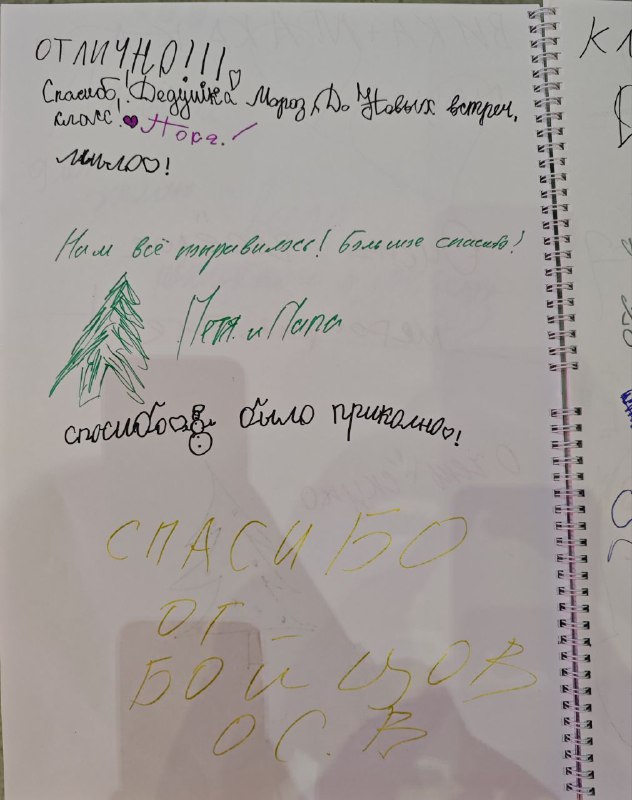 ОТЛИЧНО!!!
Спасибо! Дедушка Мороз, До Новых встреч,
класс! Нора!
мило!
Нам всё понравилось! Большое спасибо!
Петя и Папа
спосибо было приколно!
СПАСИБО
ОТ
БОЙЦОВ
О С. В